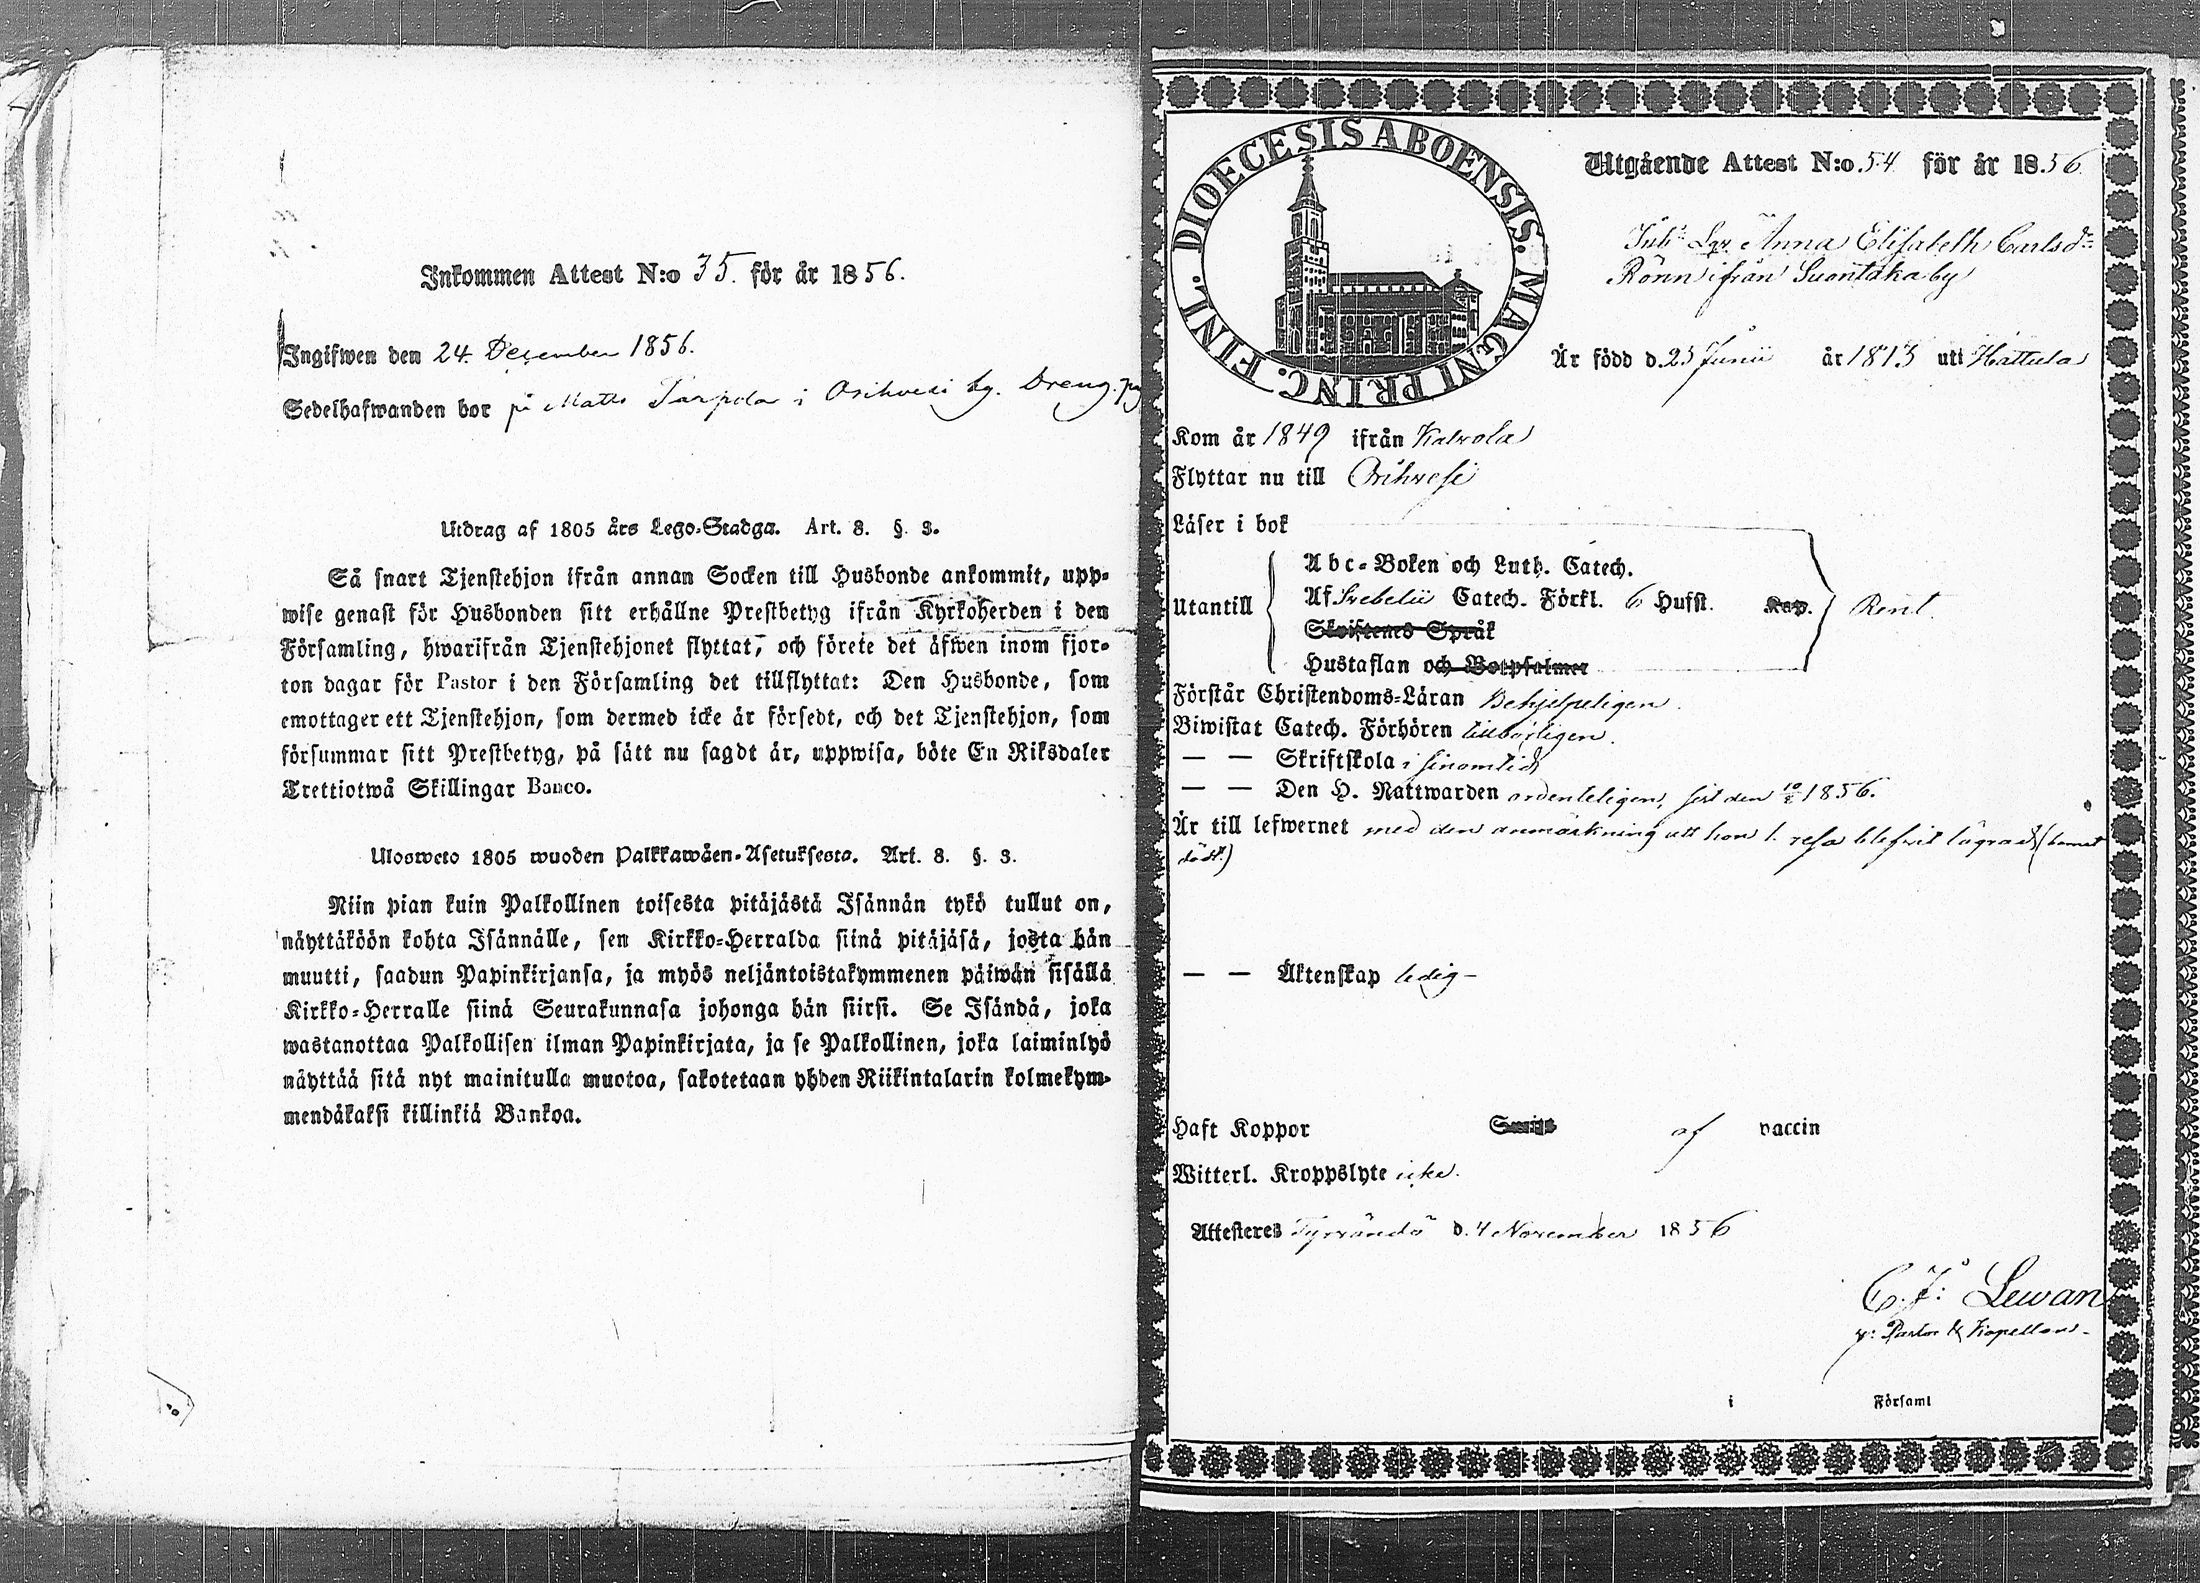 Inkommen Attest N:o 35. för år 1856.
Ingifwen den 24. December 1856.
Sedelhafwanden bor på Matts Tarpila i Orihvesi by. Dreng.
Utdrag af 1805 års Lego-Stadga. Art. 8. §. 3.
Så snart Tjenstehjon ifrån annan Socken till Husbonde ankommit, upp-
wise genast för Husbonden sitt erhållne Prestbetyg ifrån Kyrkoherden i den
Församling, hwarifrån Tjenstehjonet flyttat, och förete det äfwen inom fjor-
ton dagar för Pastor i den Församling det tillflyttat: Den Husbonde, som
emottager ett Tjenstehjon, som dermed icke är försedt, och det Tjenstehjon, som
försummar sitt Prestbetyg, på sätt nu sagdt är, uppwisa, böte En Riksdaler
Trettiotwå Skillingar Banco.
Ulosweto 1805 wuoden Palkkawäen-Asetuksesta. Art. 8. §. 3.
Niin pian kuin Palkollinen toisesta pitäjästä Isännän tykö tullut on,
näyttäköön kohta Isännälle, sen Kirkko-Herralda siinä pitäjäsä, josta hän
muutti, saadun Papinkirjansa, ja myös neljäntoistakymmenen päiwän sisällä
Kirkko-Herralle siinä Seurakunnasa johonga hän siirsi. Se Isändä, joka
wastanottaa Palkollisen ilman Papinkirjata, ja se Palkollinen, joka laiminlyö
näyttää sitä nyt mainitulla muotoa, sakotetaan yhden Riikintalarin kolmekym-
mendäkaksi killinkiä Bankoa.
DIOECESIS ABOENSIS. MAGNI PRINC. FINL.
Utgående Attest N:o 54 för år 1856
Inh: Anna Elisabeth Carlsdr
Rönn ifrån Suontaka by
Är född d. 25 Junii år 1813 uti Hattula
Kom år 1849 ifrån Kalvola
Flyttar nu till Orihvesi
Läser i bok
Abc-Boken och Luth. Catech.
Utantill Af Svebelii Catech. Förkl. 6 Husst. Kap. Rent.
Skriftenes Språk
Hustaflan och Botpsalmer
Förstår Christendoms-Läran Behjelpeligen.
Biwistat Catech. Förhören tillbörligen.
— — Skriftskola i sinom tid
— — Den H. Nattwarden ordenteligen, sist den 10/2 1856.
Är till lefwernet med den anmärkning att hon 1. resa blifvit lägrad (barnet
dödt.)
— — Äktenskap ledig —
Haft Koppor af vaccin
Witterl. Kroppslyte icke.
Attesteres Tyrvändö d. 4 November 1856
C. J: Lewan
v: Pastor & Kapellan.
i Församl